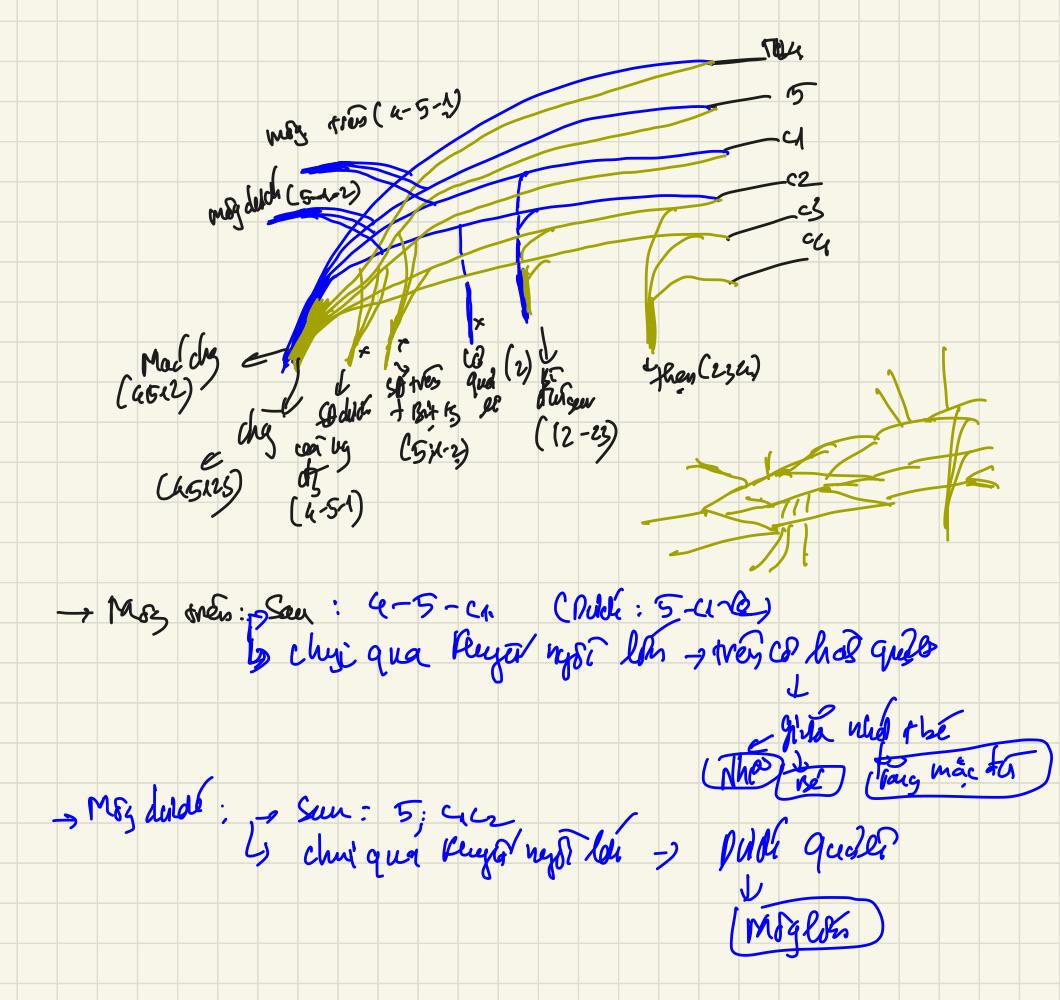 TL4
5
C1
C2
C3
C4
mông trên (4-5-1)
mông dưới (5-1-2)
Mác chg
(4512)
chg
(4.5123)
SĐ dưới
(4-5-1)
SĐ trên
+ Bịt
(5;1-2)
cơ
quả
lê
(2)
(12-23)
thẹn (234)
→ Mông trên: → Sau : 4-5-C1 (Dưới : 5-C1-C2)
↳ chui qua khuyết ngồi lớn → trên cơ hình quả lê
↓
giữa nhỡ + bé
Nhỡ
Bé
căng mạc đùi
→ Mông dưới : → Sau = 5; C1C2
↳ chui qua khuyết ngồi lớn → Dưới quả lê
↓
Mông lớn